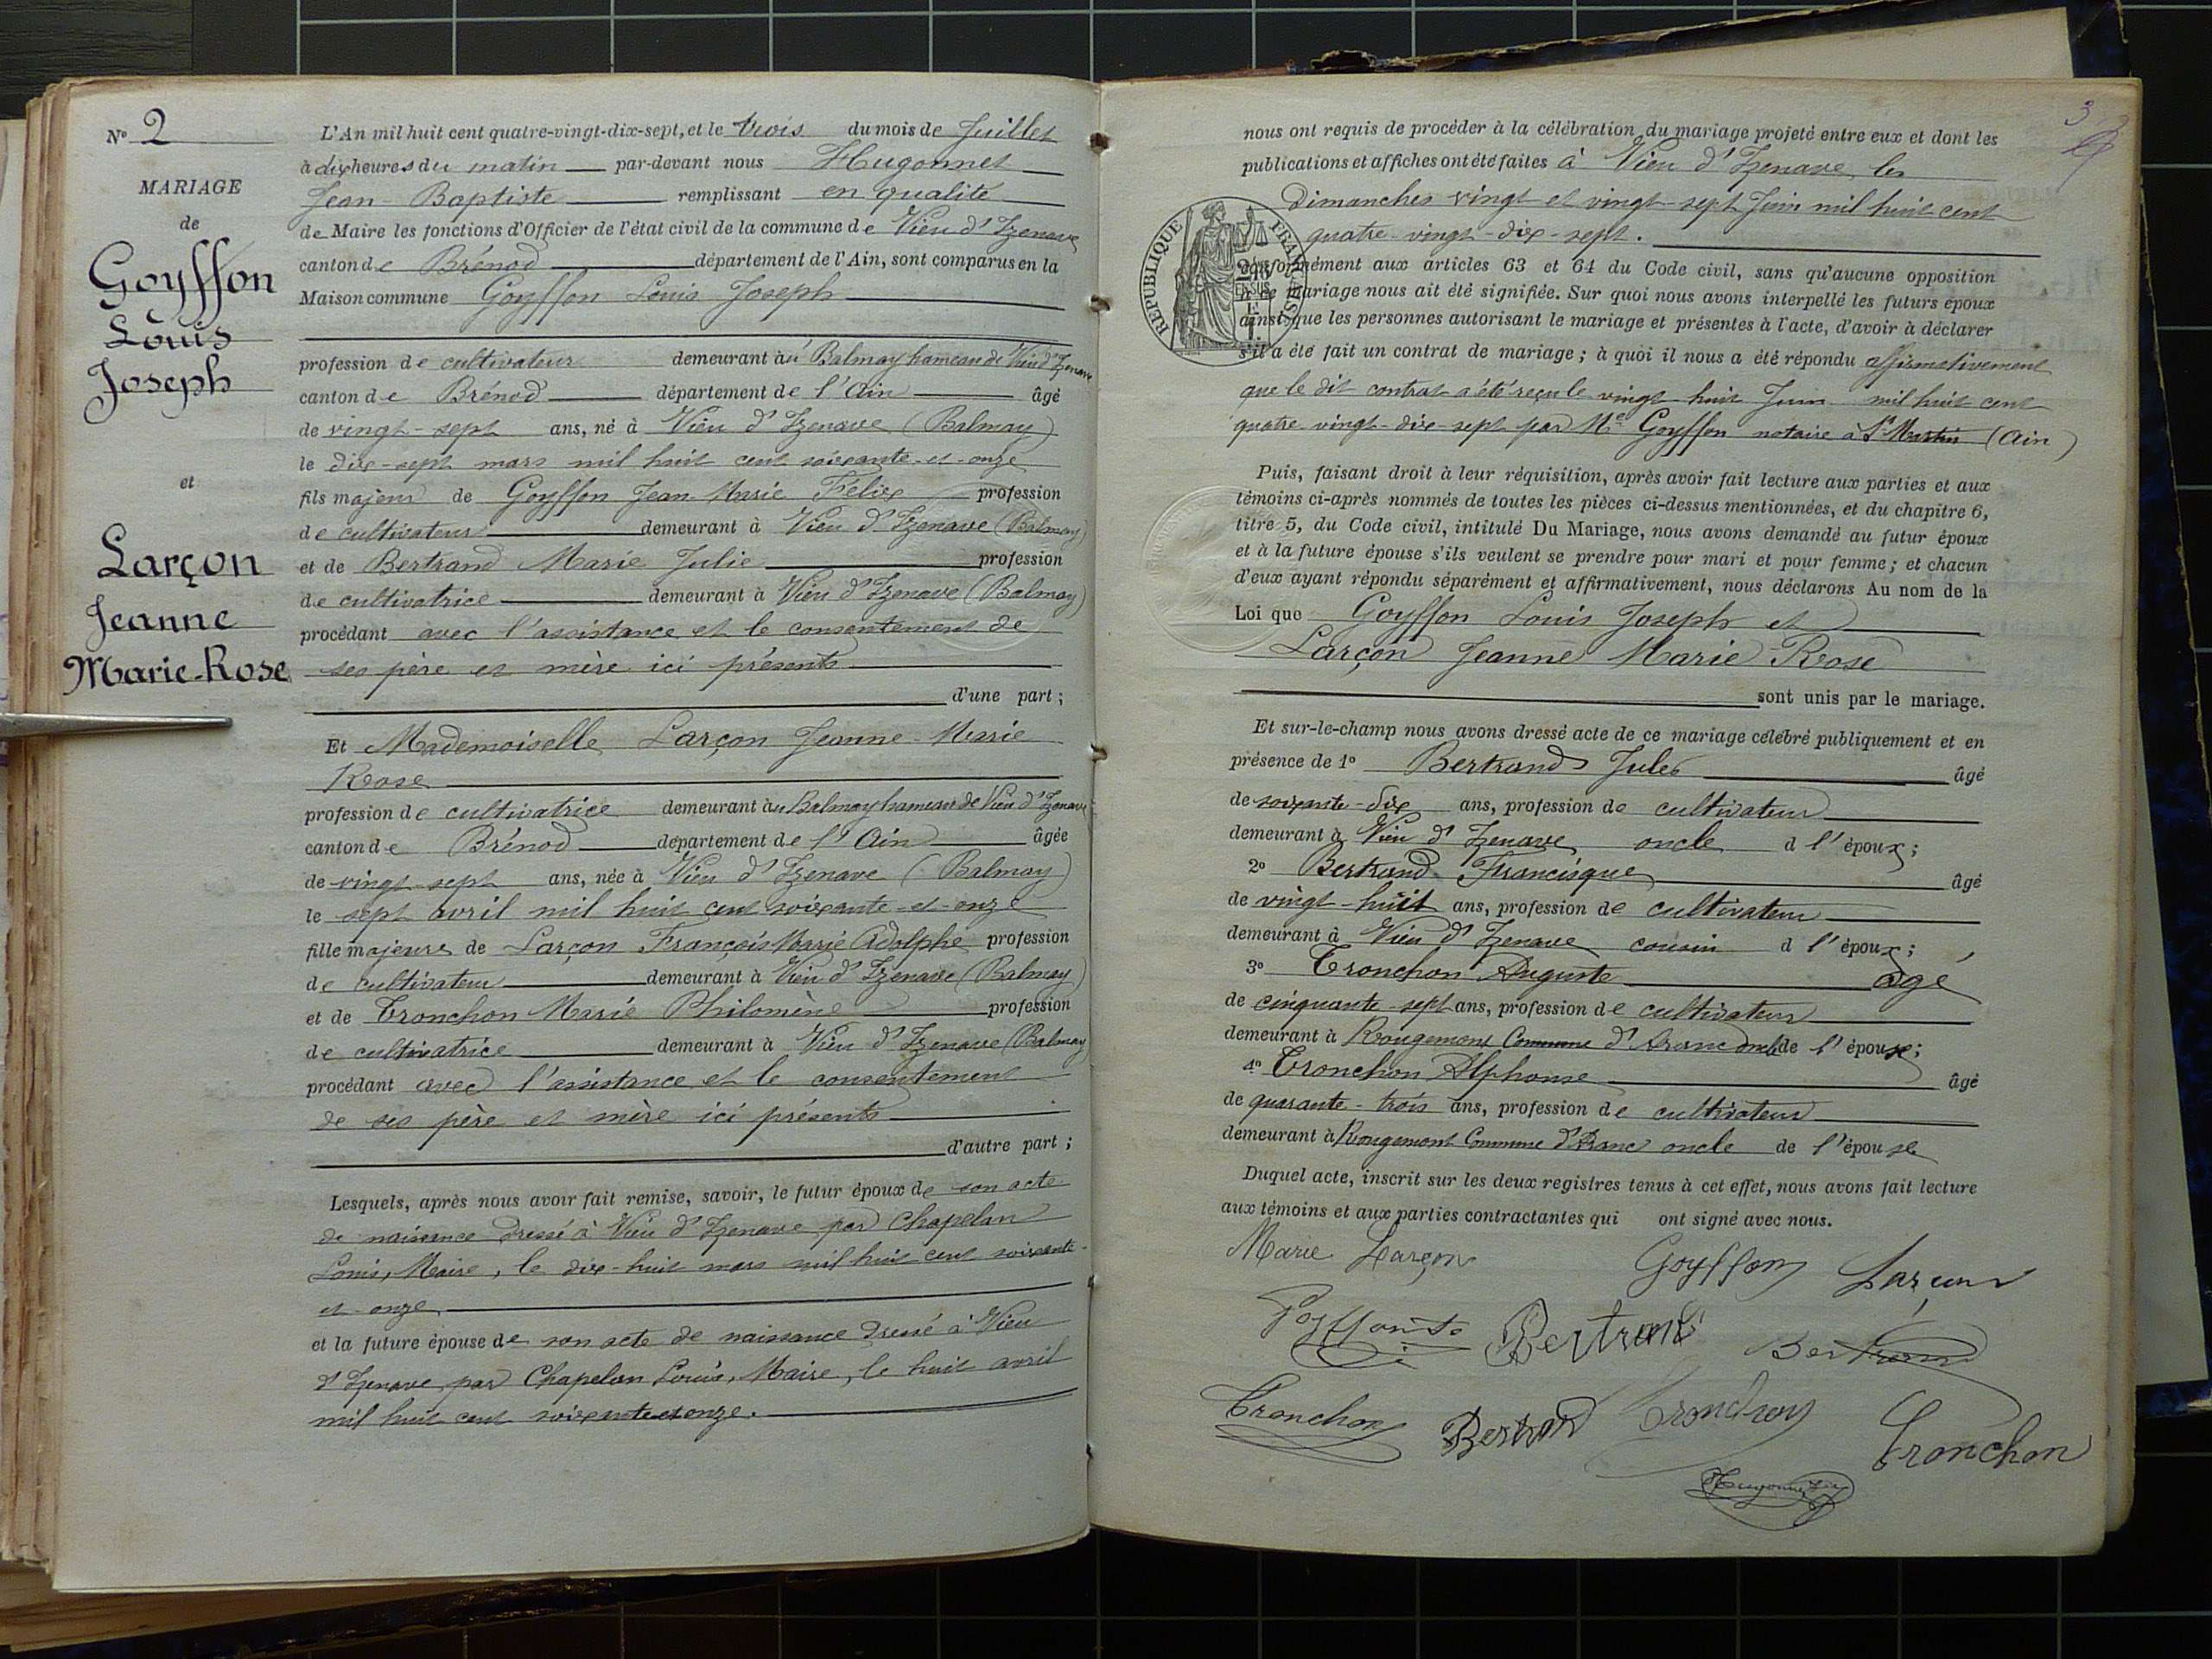 N° 2
MARIAGE
de
Goyffon
Louis
Joseph
et
Larçon
Jeanne
Marie-Rose
L'An mil huit cent quatre-vingt-dix-sept, et le trois du mois de Juillet
à dix heures du matin par-devant nous Hugonnet
Jean-Baptiste remplissant en qualité
de Maire les fonctions d'Officier de l'état civil de la commune de Vieu d'Izenave
canton de Brénod département de l'Ain, sont comparus en la
Maison commune Goyffon Louis Joseph
profession de cultivateur demeurant à Balmay hameau de Vieu d'Izenave
canton de Brénod département de l'Ain âgé
de vingt-sept ans, né à Vieu d'Izenave (Balmay)
le dix-sept mars mil huit cent soixante-et-onze
fils majeur de Goyffon Jean Marie Félix profession
de cultivateur demeurant à Vieu d'Izenave (Balmay)
et de Bertrand Marie Julie profession
de cultivatrice demeurant à Vieu d'Izenave (Balmay)
procédant avec l'assistance et le consentement de
ses père et mère ici présents
d'une part ;
Et Mademoiselle Larçon Jeanne-Marie
Rose
profession de cultivatrice demeurant au Balmay hameau de Vieu d'Izenave
canton de Brénod département de l'Ain âgée
de vingt-sept ans, née à Vieu d'Izenave (Balmay)
le sept avril mil huit cent soixante-et-onze
fille majeure de Larçon François Marie Adolphe profession
de cultivateur demeurant à Vieu d'Izenave (Balmay)
et de Tronchon Marie Philomène profession
de cultivatrice demeurant à Vieu d'Izenave (Balmay
procédant avec l'assistance et le consentement
de ses père et mère ici présents
d'autre part ;
Lesquels, après nous avoir fait remise, savoir, le futur époux de son acte
de naissance dressé à Vieu d'Izenave par Chapelan
Louis, Maire, le dix-huit mars mil huit cent soixante-
et-onze
et la future épouse de son acte de naissance dressé à Vieu
d'Izenave par Chapelan Louis, Maire, le huit avril
mil huit cent soixante et onze.
3
nous ont requis de procéder à la célébration du mariage projeté entre eux et dont les
publications et affiches ont été faites à Vieu d'Izenave, les
Dimanches vingt et vingt-sept Juin mil huit cent
quatre-vingt-dix-sept.
RÉPUBLIQUE FRANÇAISE
conformément aux articles 63 et 64 du Code civil, sans qu'aucune opposition
à ce mariage nous ait été signifiée. Sur quoi nous avons interpellé les futurs époux
ainsi que les personnes autorisant le mariage et présentes à l'acte, d'avoir à déclarer
s'il a été fait un contrat de mariage ; à quoi il nous a été répondu affirmativement
que le dit contrat a été reçu le vingt huit Juin mil huit cent
quatre-vingt-dix-sept par Me Goyffon notaire à St Martin (Ain)
Puis, faisant droit à leur réquisition, après avoir fait lecture aux parties et aux
témoins ci-après nommés de toutes les pièces ci-dessus mentionnées, et du chapitre 6,
titre 5, du Code civil, intitulé Du Mariage, nous avons demandé au futur époux
et à la future épouse s'ils veulent se prendre pour mari et pour femme ; et chacun
d'eux ayant répondu séparément et affirmativement, nous déclarons Au nom de la
Loi que Goyffon Louis Joseph et
Larçon Jeanne Marie Rose
sont unis par le mariage.
Et sur-le-champ nous avons dressé acte de ce mariage célébré publiquement et en
présence de 1° Bertrand Jules âgé
de soixante-dix ans, profession de cultivateur
demeurant à Vieu d'Izenave oncle d l'époux ;
2° Bertrand Francisque âgé
de vingt-huit ans, profession de cultivateur
demeurant à Vieu d'Izenave cousin d l'époux ;
3° Tronchon Auguste âgé
de cinquante-sept ans, profession de cultivateur
demeurant à Rougemont Commune d'Aranc oncle de l'épouse ;
4° Tronchon Alphonse âgé
de quarante-trois ans, profession de cultivateur
demeurant à Rougemont Commune d'Aranc oncle de l'épouse
Duquel acte, inscrit sur les deux registres tenus à cet effet, nous avons fait lecture
aux témoins et aux parties contractantes qui ont signé avec nous.
Marie Larçon Goyffon Larçon
Bertrand Bertrand
Tronchon Bertrand Tronchon Tronchon